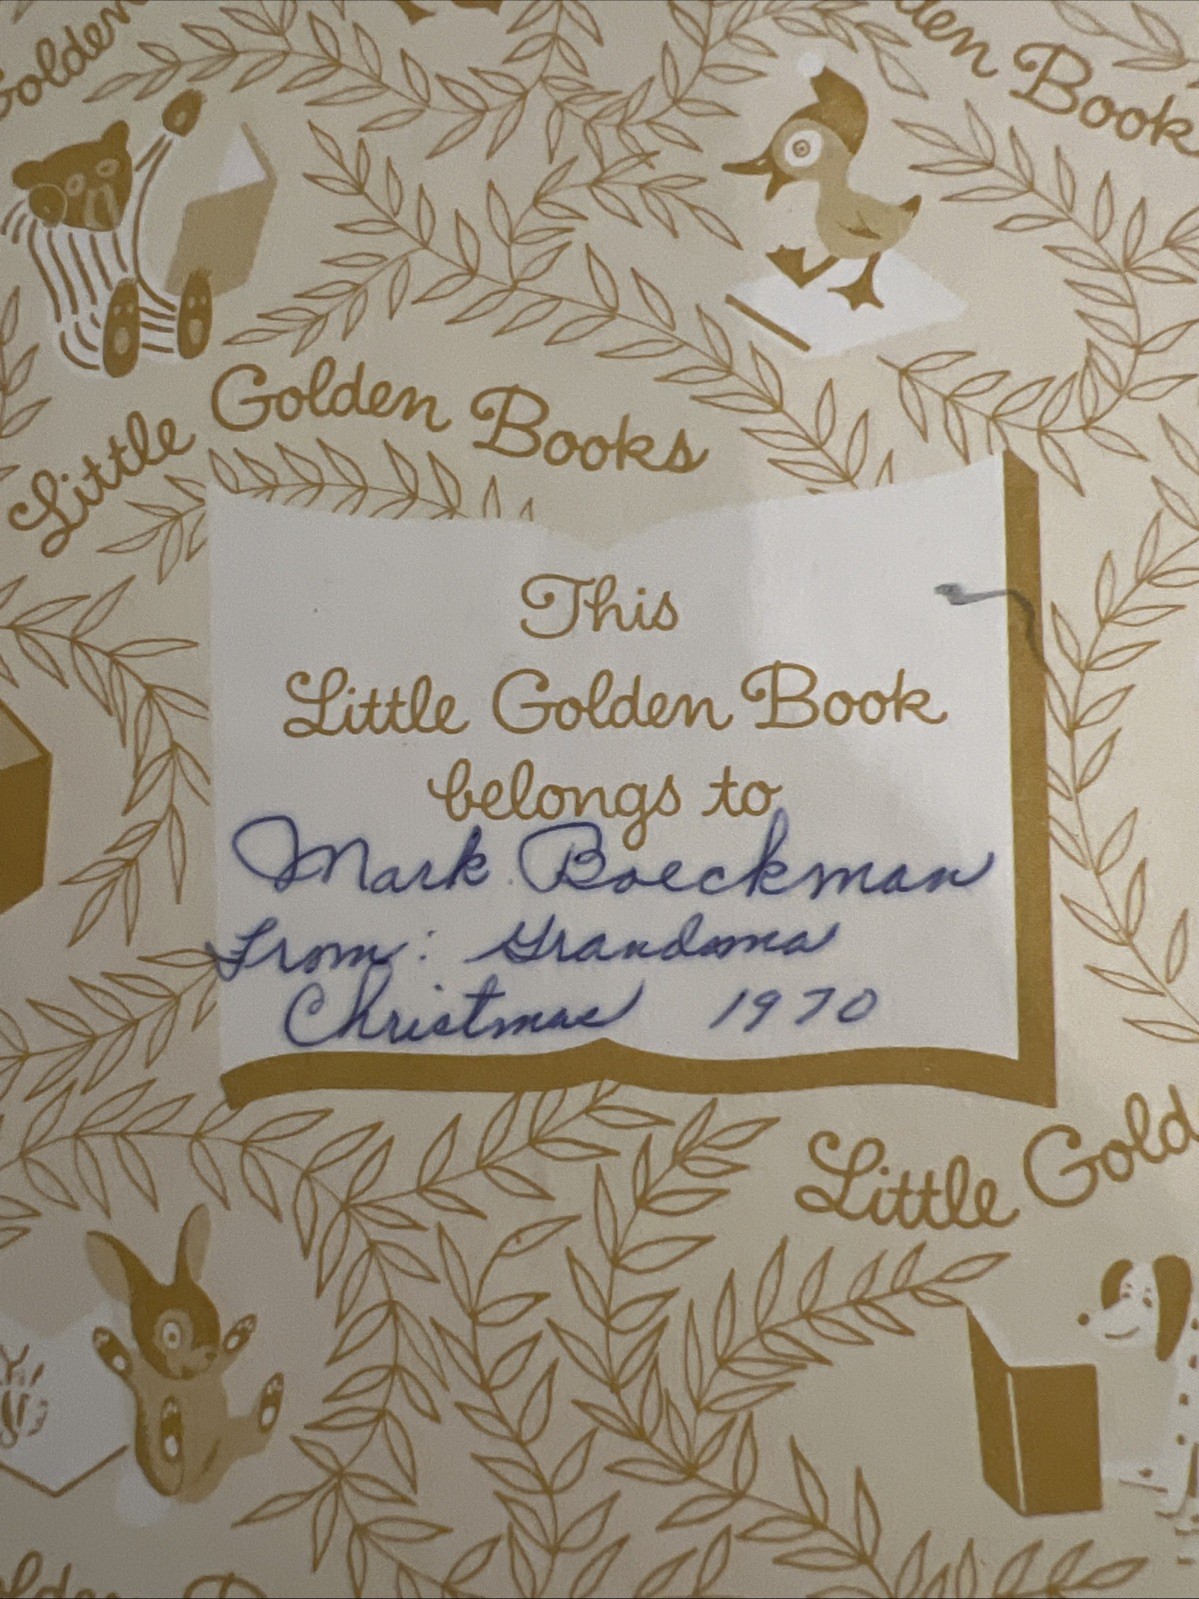 Golden
den Book
Little Golden Books
This
Little Golden Book
belongs to
Mark Boeckman
From: Grandma
Christmas 1970
Little Gold